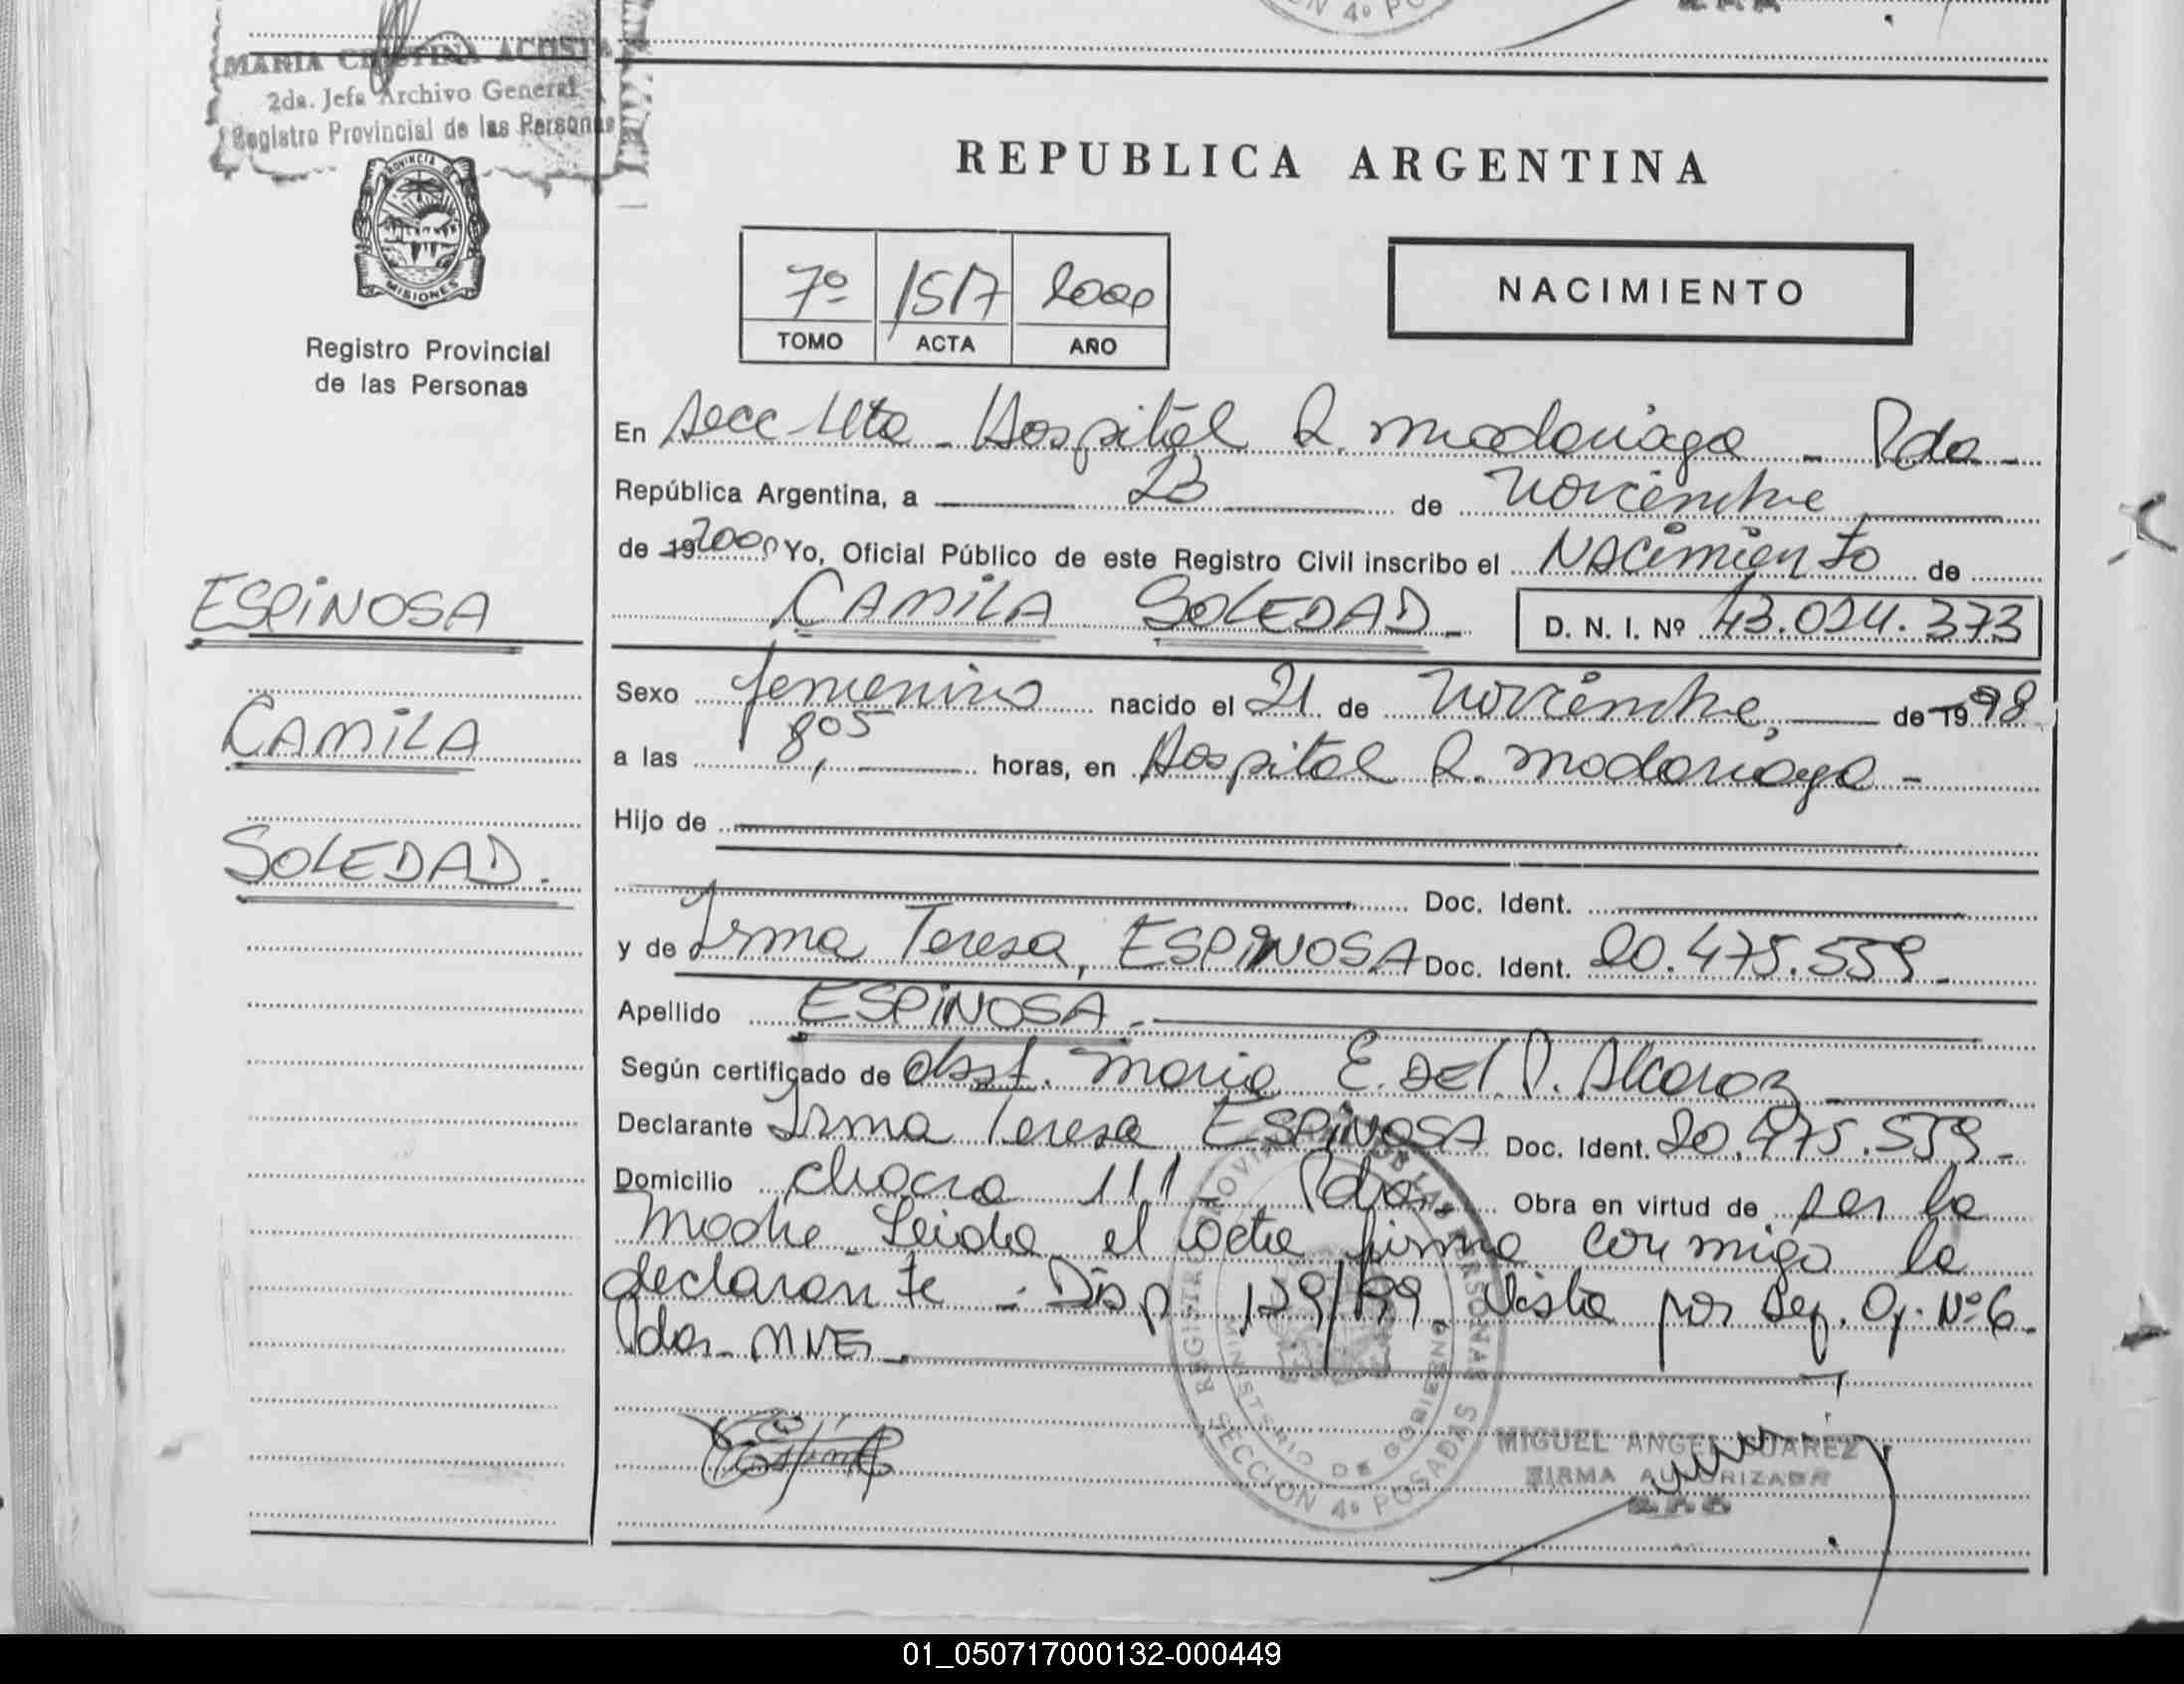 MARIA CRISTINA ACOSTA
2da. Jefa Archivo General
Registro Provincial de las Personas
PROVINCIA DE
MISIONES
Registro Provincial
de las Personas
ESPINOSA
CAMILA
SOLEDAD.
REPUBLICA ARGENTINA
7º 1517 2000
TOMO ACTA AÑO
NACIMIENTO
En Secc 4ta - Hospital R. Madariaga - Pdas -
República Argentina, a 23 de noviembre
de 19 2000 Yo, Oficial Público de este Registro Civil inscribo el NAcimiento de
CAMILA SOLEDAD - D. N. I. Nº 43.024.373
Sexo femenino nacido el 21 de noviembre, de 1998
a las 8,05 horas, en Hospital R. Madariaga -
Hijo de
Doc. Ident.
y de Irma Teresa, ESPINOSA Doc. Ident. 20.475.559 -
Apellido ESPINOSA -
Según certificado de obst. Maria E. DEl P. Alcaraz
Declarante Irma Teresa ESPINOSA Doc. Ident. 20.475.559 -
Domicilio chacra 111 - Pdas. Obra en virtud de ser la
Madre - Leida el acta firma conmigo la
declarante - Disp 129/99. Vista por Del. Of. Nº 6 -
Pdas - MNES -
REGISTRO PROVINCIAL DE LAS PERSONAS
MINISTERIO DE GOBIERNO
SECCION 4º POSADAS
MIGUEL ANGEL SUAREZ
FIRMA AUTORIZADA
01_050717000132-000449